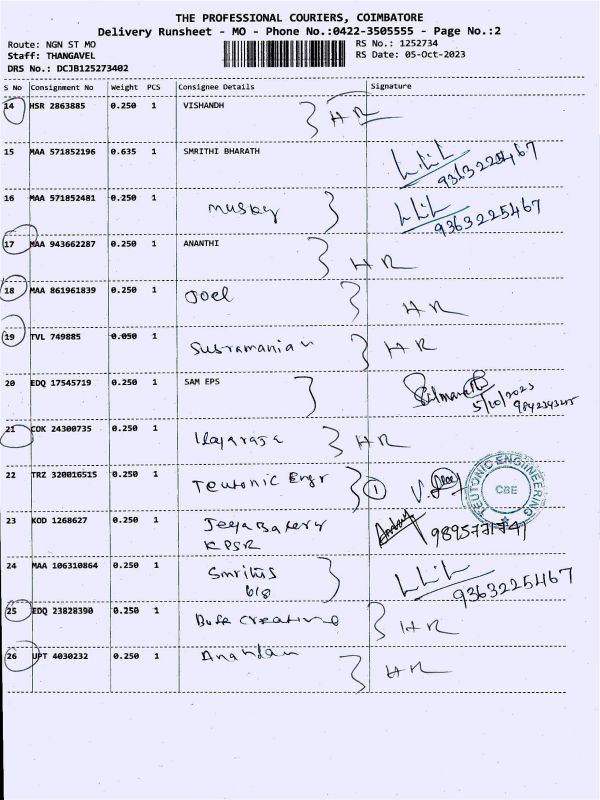 THE PROFESSIONAL COURIERS, COIMBATORE
Delivery Runsheet - MO - Phone No.:0422-3505555 - Page No.:2
Route: NGN ST MO
RS No.: 1252734
Staff: THANGAVEL
RS Date: 05-Oct-2023
DRS No.: DCJB125273402
S No Consignment No Weight PCS Consignee Details Signature
14 HSR 2863885 0.250 1 VISHANDH HR
15 MAA 571852196 0.635 1 SMRITHI BHARATH
9363225467
16 MAA 571852481 0.250 1 Musky
9363225467
17 MAA 943662287 0.250 1 ANANTHI HR
18 MAA 861961839 0.250 1 Joel HR
19 TVL 749885 0.050 1 Subramanian HR
20 EDQ 17545719 0.250 1 SAM EPS
5/10/2023
21 COK 24300735 0.250 1 Ilayaraja HR
22 TRZ 320016515 0.250 1 Teutonic Engr 1
TEUTONIC ENGINEERING
CBE
23 KOD 1268627 0.250 1 Jeya Bakery
KPSR
24 MAA 106310864 0.250 1 Smrithis
9363225467
25 EDQ 23828390 0.250 1 Creating HR
26 UPT 4030232 0.250 1 Anandan HR